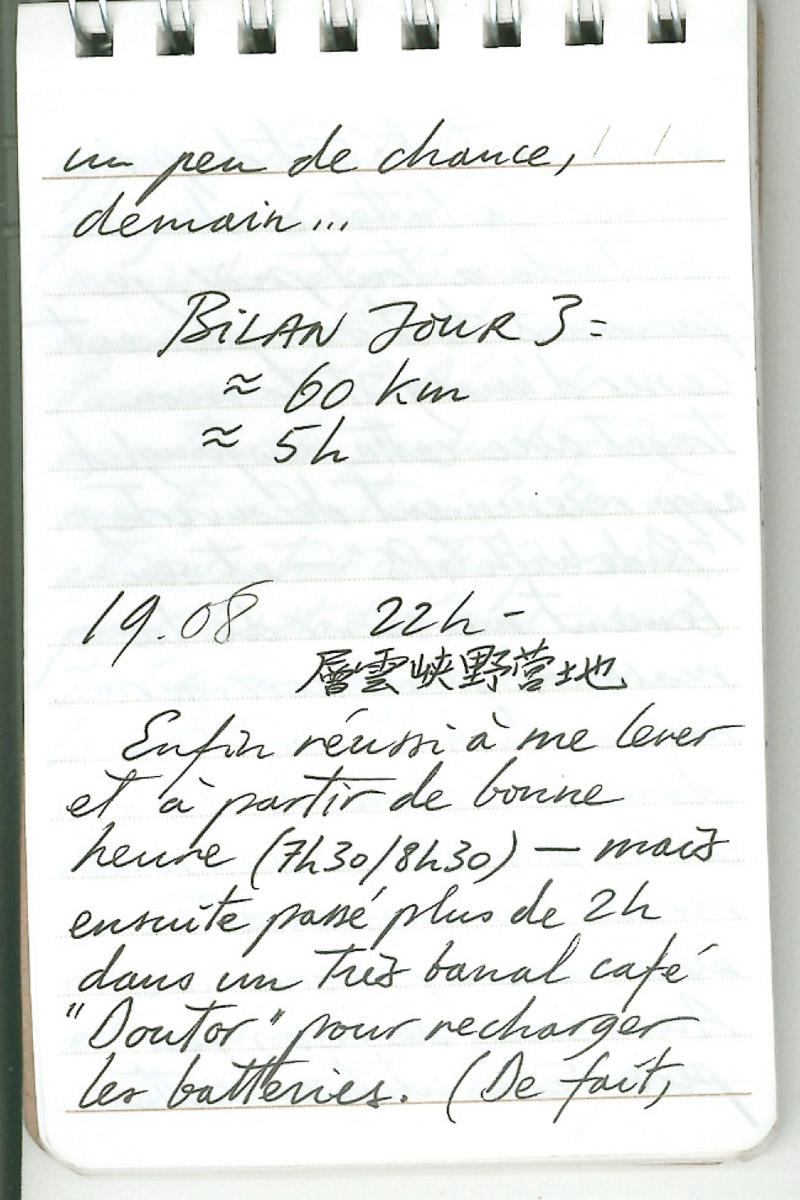 un peu de chance,
demain...
BiLAN JOUR 3 =
≈ 60 km
≈ 5h
19.08 22h -
層雲峡野営地
Enfin réussi à me lever
et à partir de bonne
heure (7h30/8h30) — mais
ensuite passé plus de 2h
dans un très banal café
"Doutor" pour recharger
les batteries. (De fait,